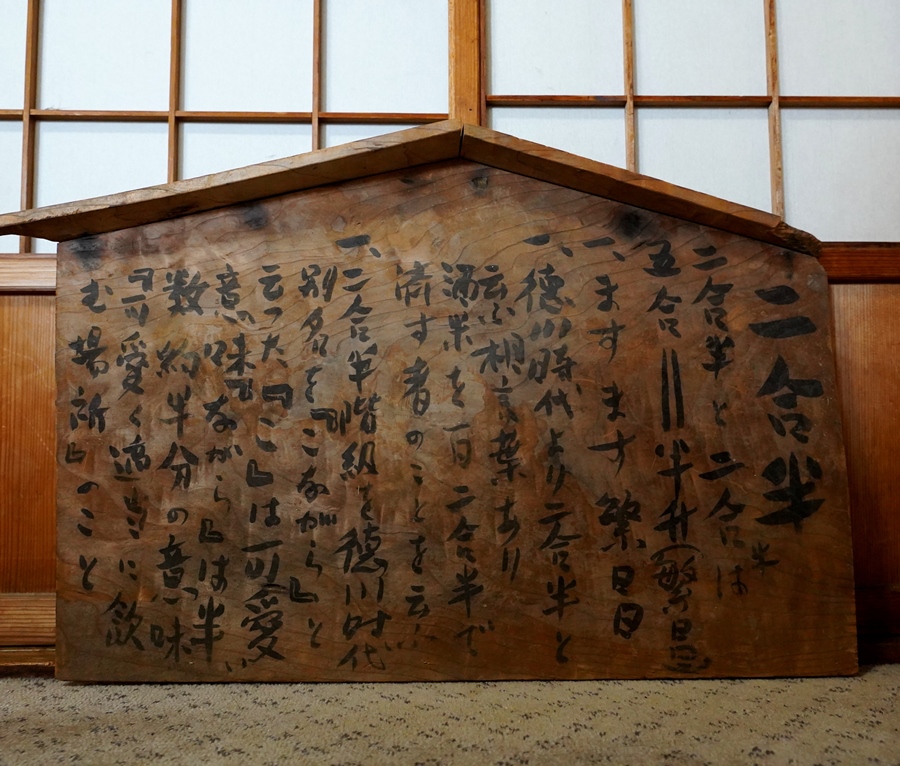 二合半
二合半と二合半は
五合＝半升(繁昌)
一、ます ます 繁昌
一、徳川時代より二合半と
云ふ相言葉あり
酒米を一日二合半で
済す者のことを云ふ
一、二合半階級を徳川時代
別名を『こながら』と
云った『こ』は可愛い
意味『ながら』は半
数約半分の意味
『可愛く適当に飲
む場所』のこと